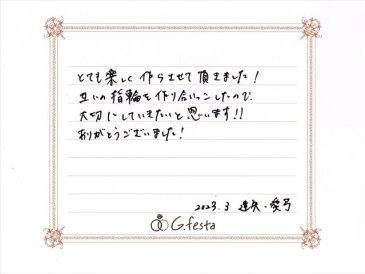 とても楽しく作らせて頂きました!
互いの指輪を作り合いっこしたので
大切にしていきたいと思います!!
ありがとうございました!
2023.3 達矢・愛弓
G.festa